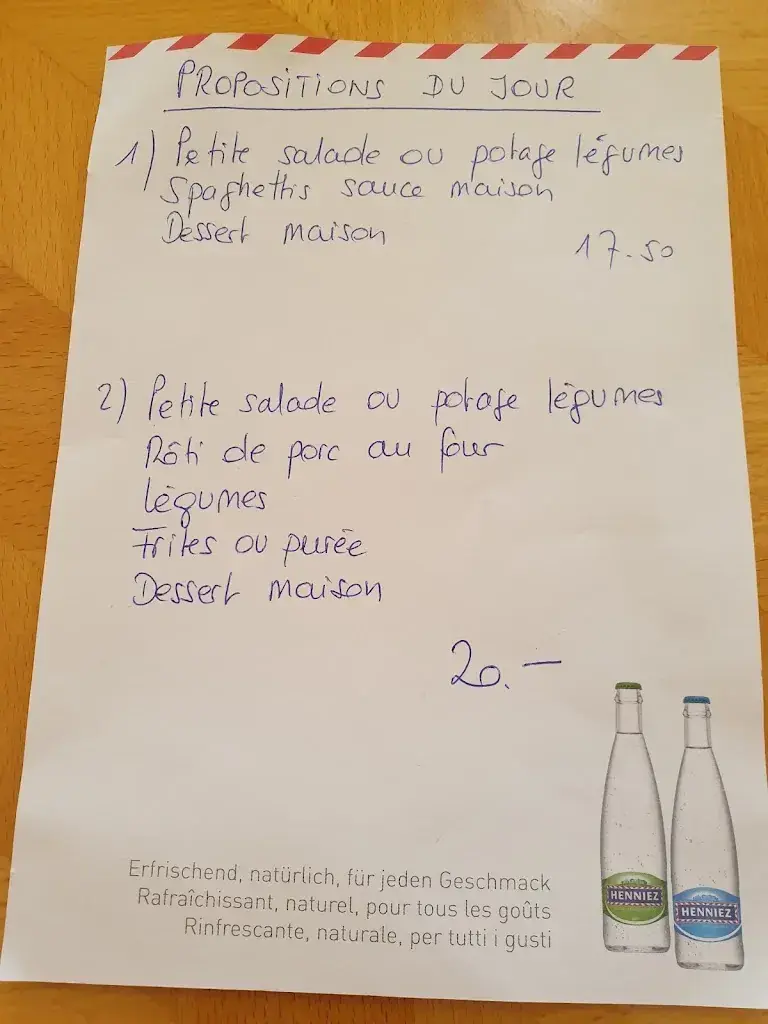 PROPOSITIONS DU JOUR
1) Petite salade ou potage légumes
Spaghettis sauce maison
Dessert maison
17.50
2) Petite salade ou potage légumes
Rôti de porc au four
légumes
Frites ou purée
Dessert maison
20.—
HENNIEZ
HENNIEZ
Erfrischend, natürlich, für jeden Geschmack
Rafraîchissant, naturel, pour tous les goûts
Rinfrescante, naturale, per tutti i gusti